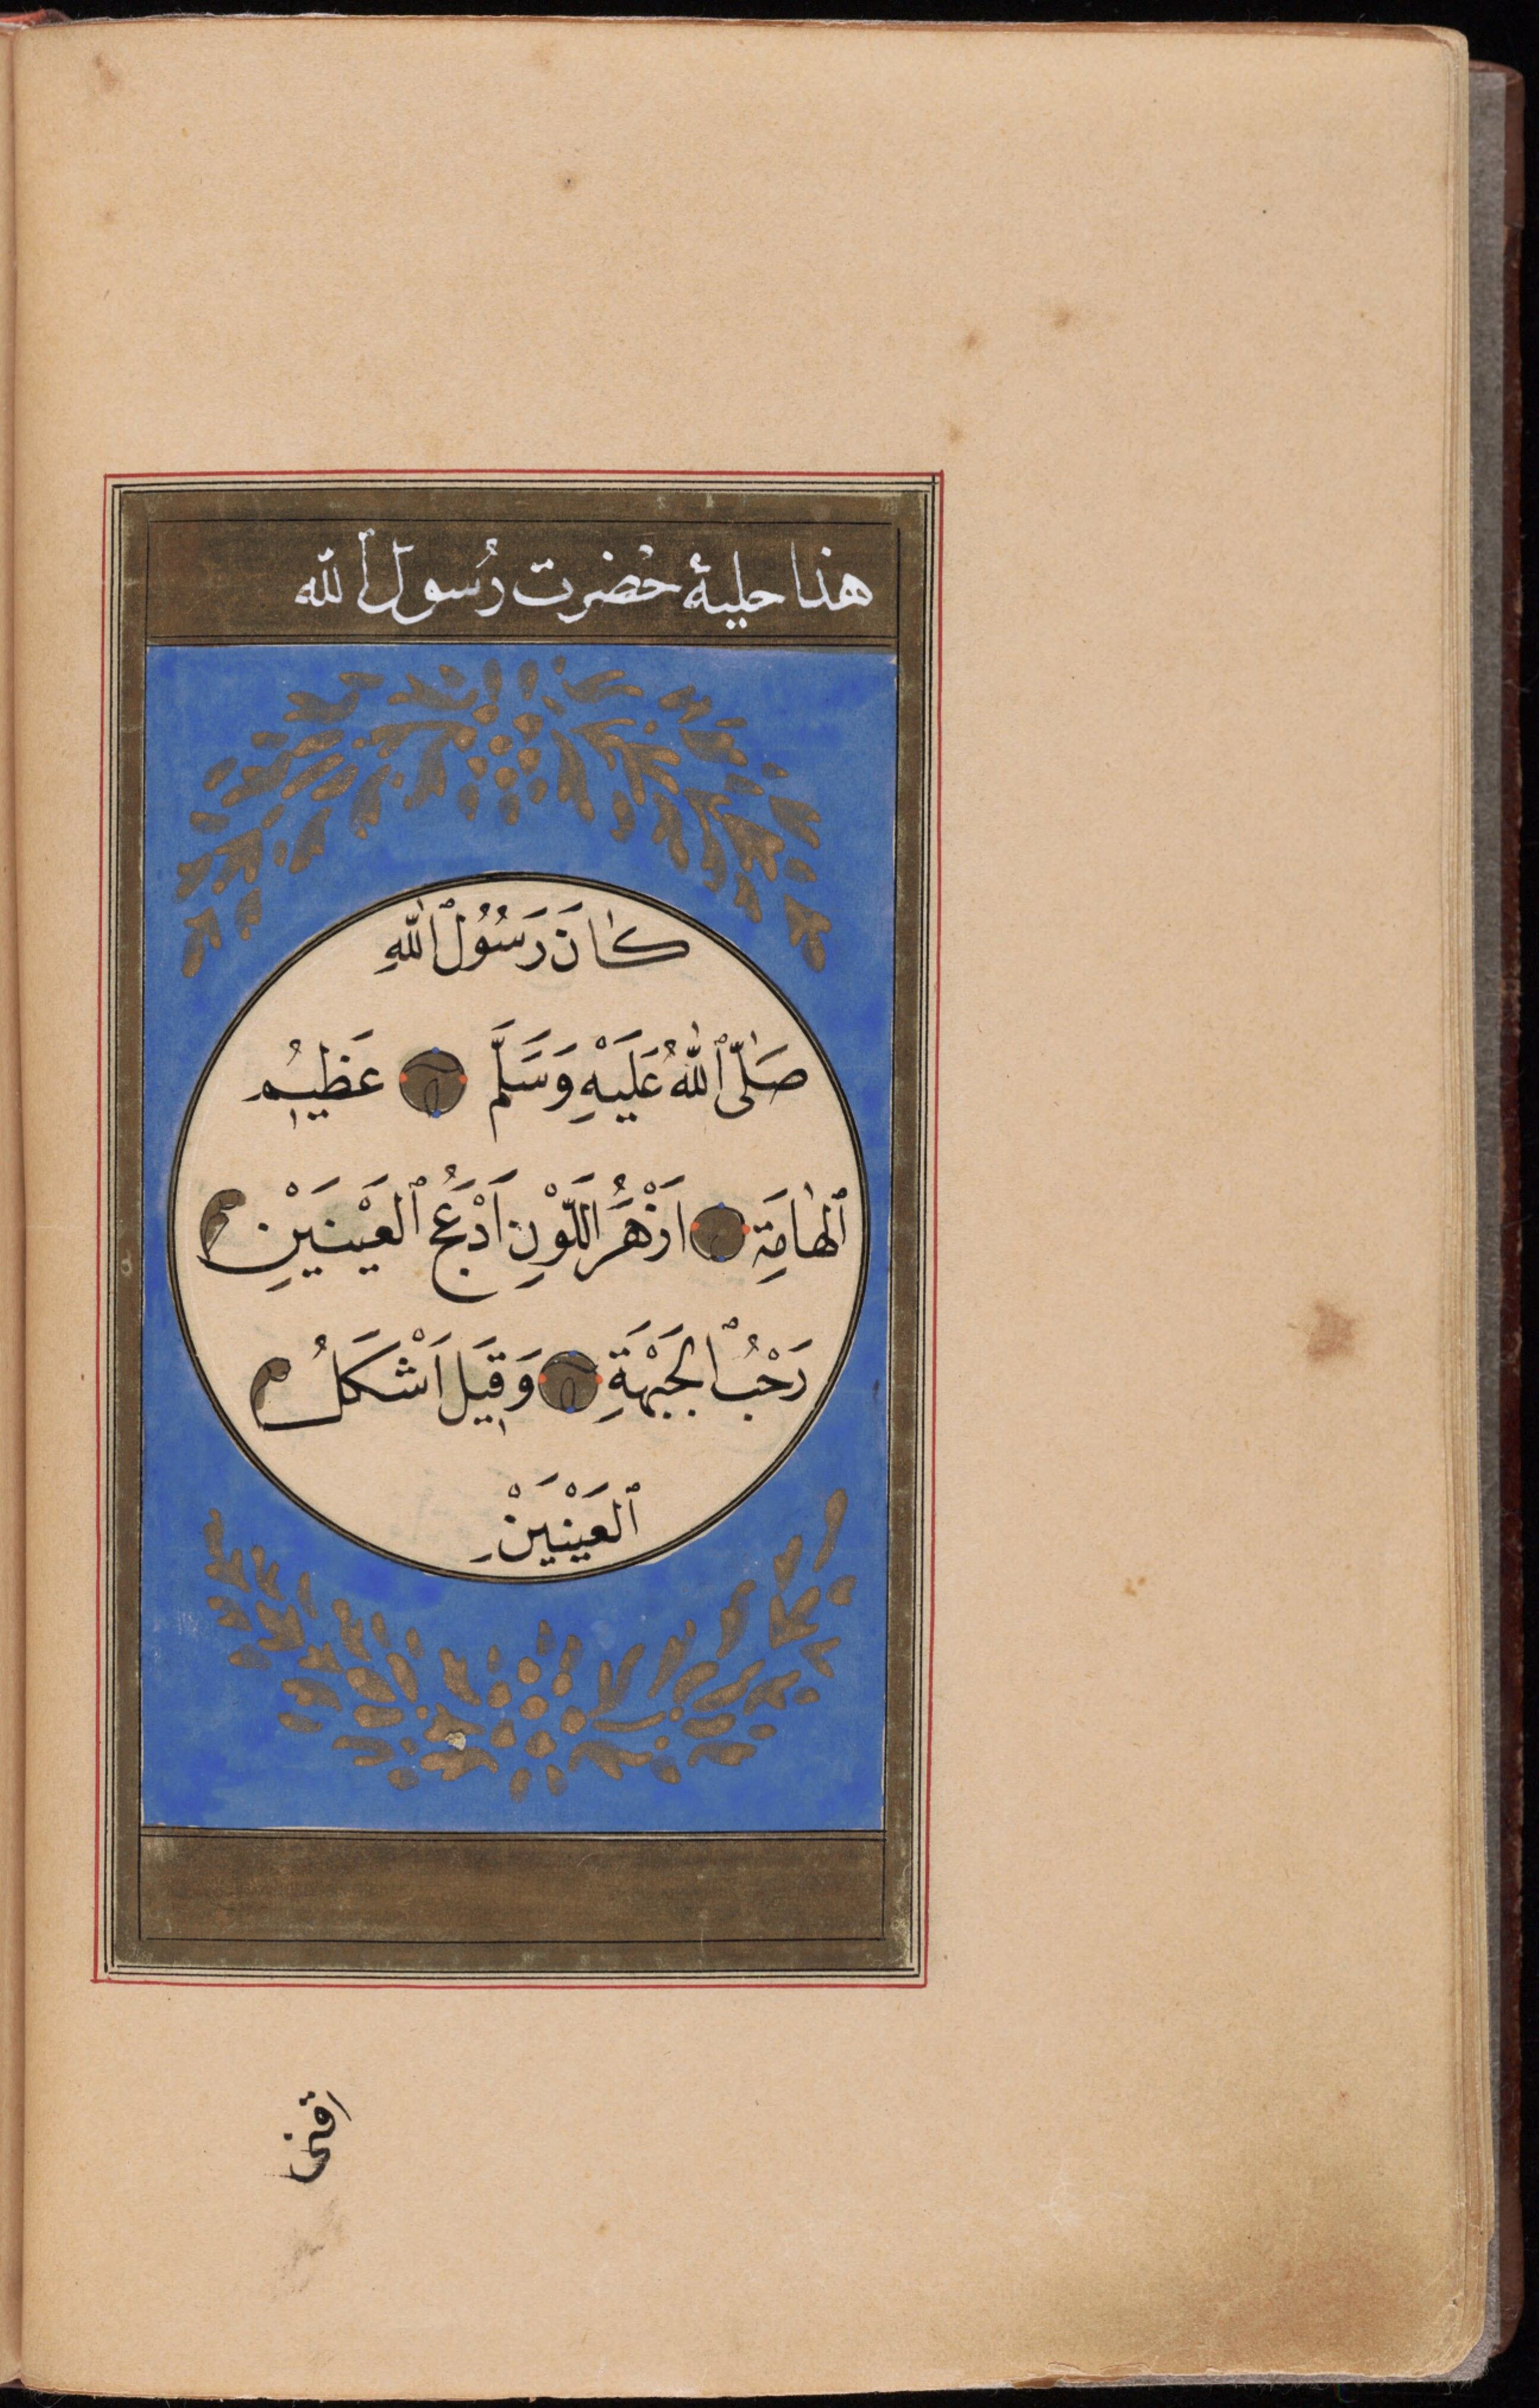 هذا حلية حضرت رسول الله
كَانَ رَسُولُ ٱللّٰهِ
صَلَّى ٱللّٰهُ عَلَيْهِ وَسَلَّمَ عَظِيمُ
ٱلْهَامَةِ اَزْهَرُ اللَّوْنِ اَدْعَجُ ٱلعَيْنَيْنِ
رَحْبُ ٱلجَبْهَةِ وَقِيلَ اَشْكَلُ
ٱلعَيْنَيْنِ
اقنى